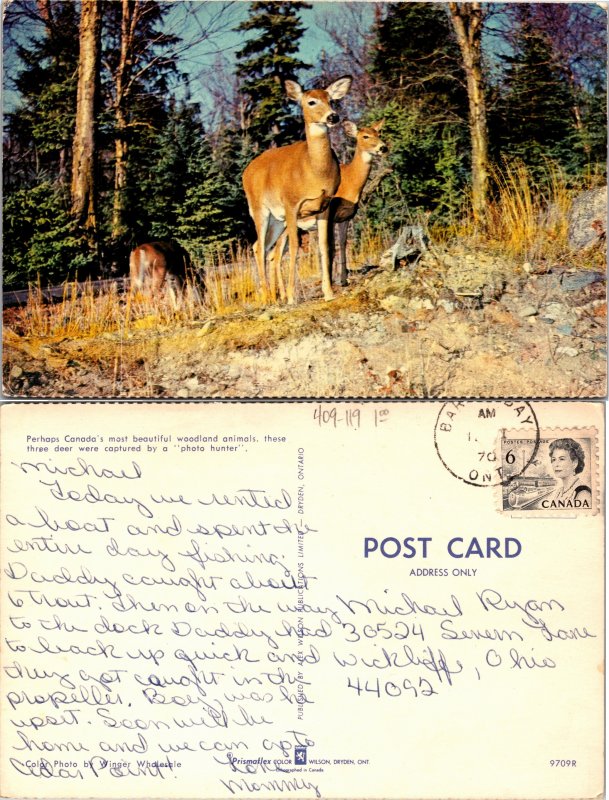 409-119 1⁰⁰
Perhaps Canada's most beautiful woodland animals, these
three deer were captured by a "photo hunter".
Michael
Today we rented
a boat and spent the
entire day fishing.
Daddy caught about
6 trout. Then on the way
to the dock Daddy had
to back up quick and
they got caught in the
propeller. Boy, was he
upset. Soon will be
home and we can go to
Cedar Point!
Love
Mommy
Color Photo by Winger Wholesale
PUBLISHED BY ALEX WILSON PUBLICATIONS LIMITED, DRYDEN, ONTARIO
Prismaflex COLOR WILSON, DRYDEN, ONT.
lithographed in Canada
AM
70
ONT
POSTES POSTAGE
6
CANADA
POST CARD
ADDRESS ONLY
Michael Ryan
30524 Severn Lane
Wickliffe, Ohio
44092
9709R